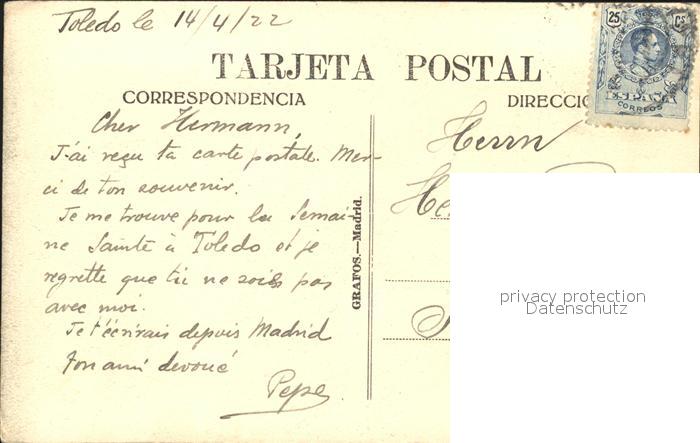 Toledo le 14/4/22
25 Cs
CORREOS
TARJETA POSTAL
CORRESPONDENCIA
DIRECCIO
Cher Hermann,
J'ai reçu ta carte postale. Mer-
ci de ton souvenir.
Je me trouve pour la Semai-
ne Sainte à Toledo et je
regrette que tu ne sois pas
avec moi.
Je t'écrirais depuis Madrid
Ton ami devoué
Pepe
GRAFOS.—Madrid.
Herrn
He
privacy protection
Datenschutz